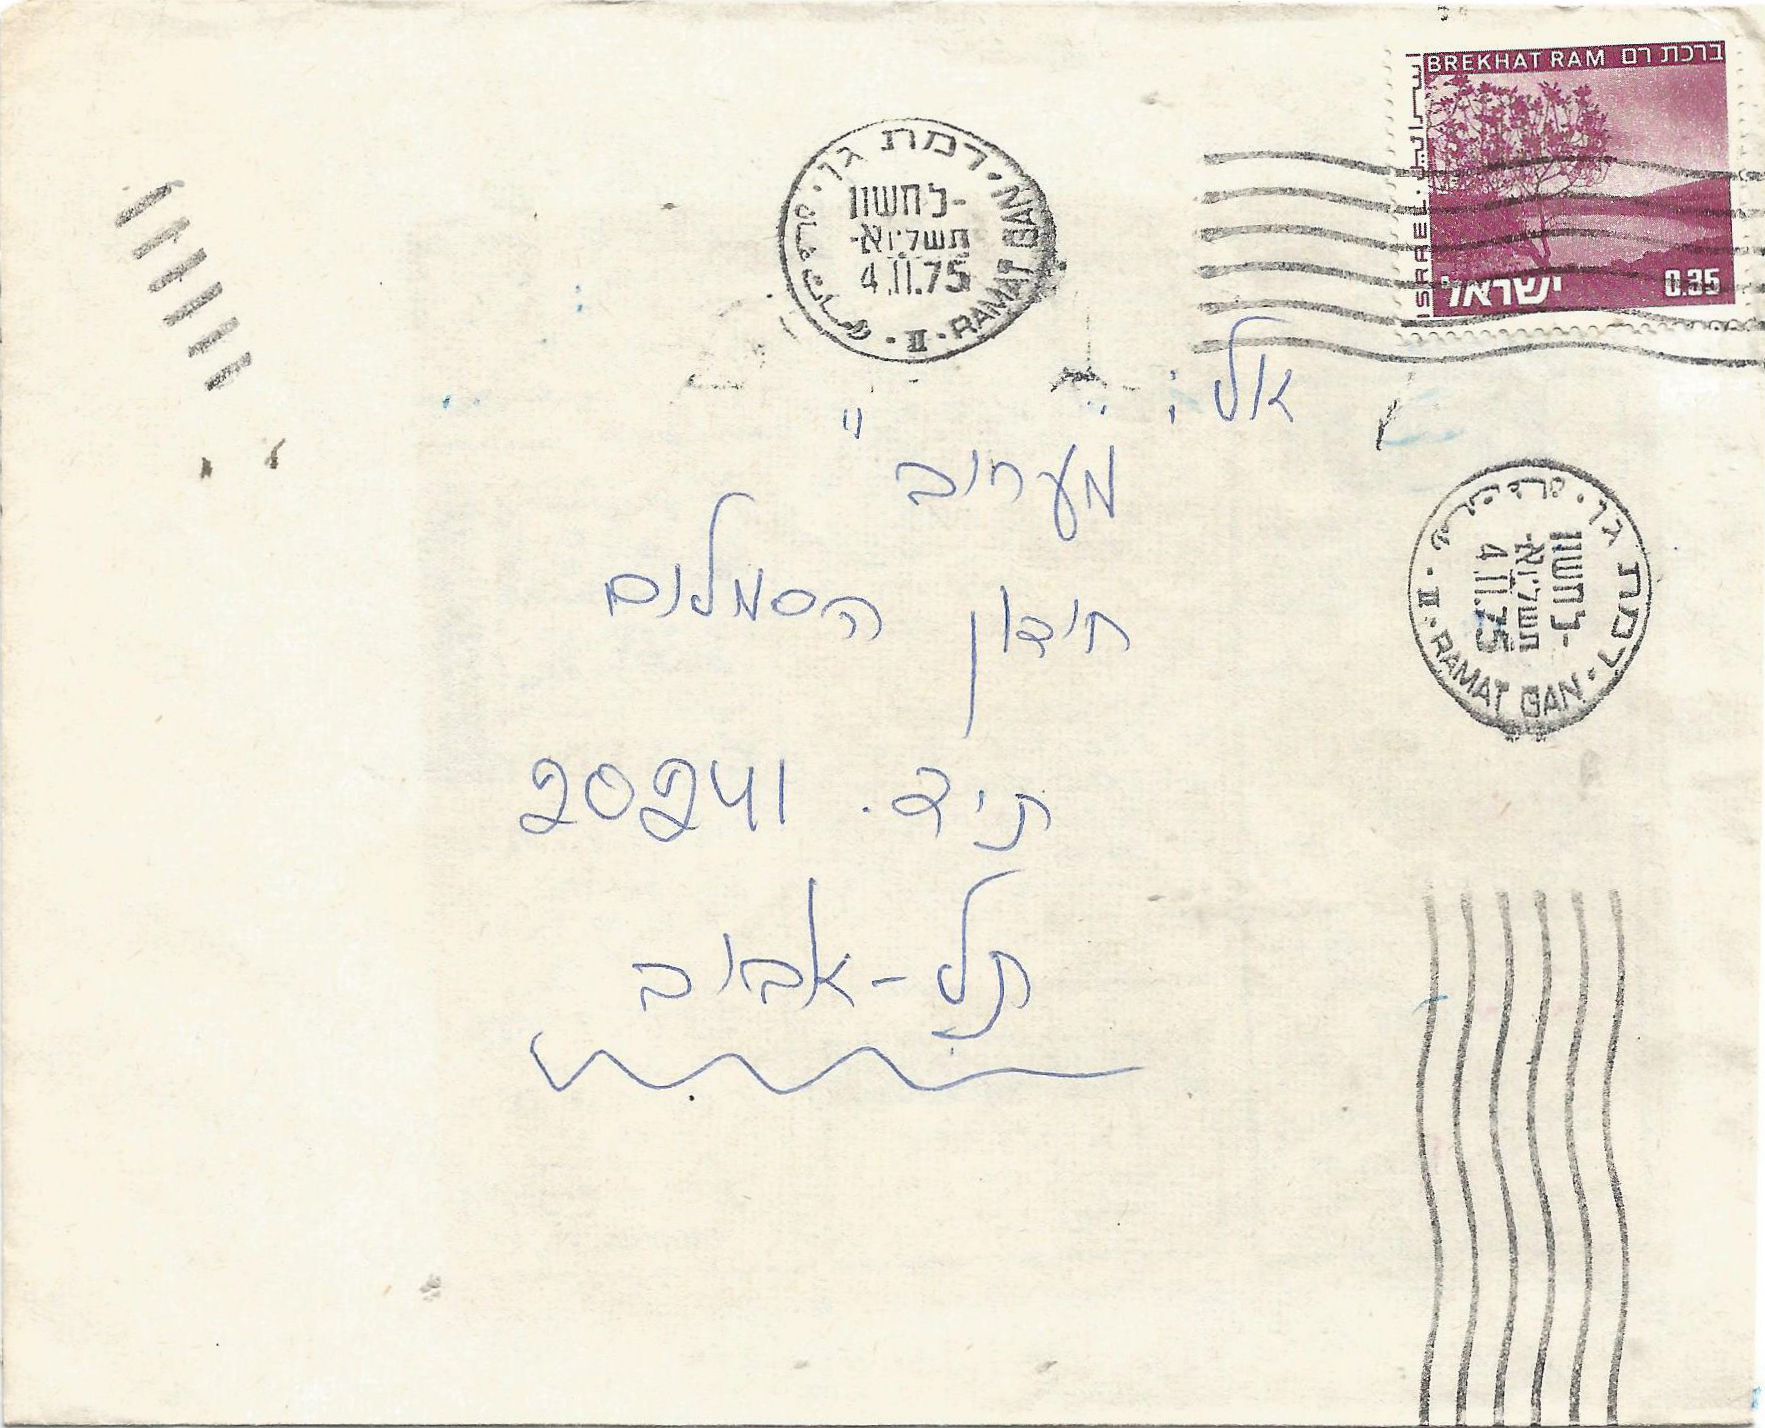 BREKHAT RAM ברכת רם
ISRAEL
ישראל
0.35
רמת גן
ל-חשון
תשל"ו-א
4.11.75
II
RAMAT GAN
אל:
"מעריב"
חידון הסמלים
ת.ד. 20241
תל-אביב
רמת גן
ל-חשון
תשל"ו-א
4.11.75
II
RAMAT GAN